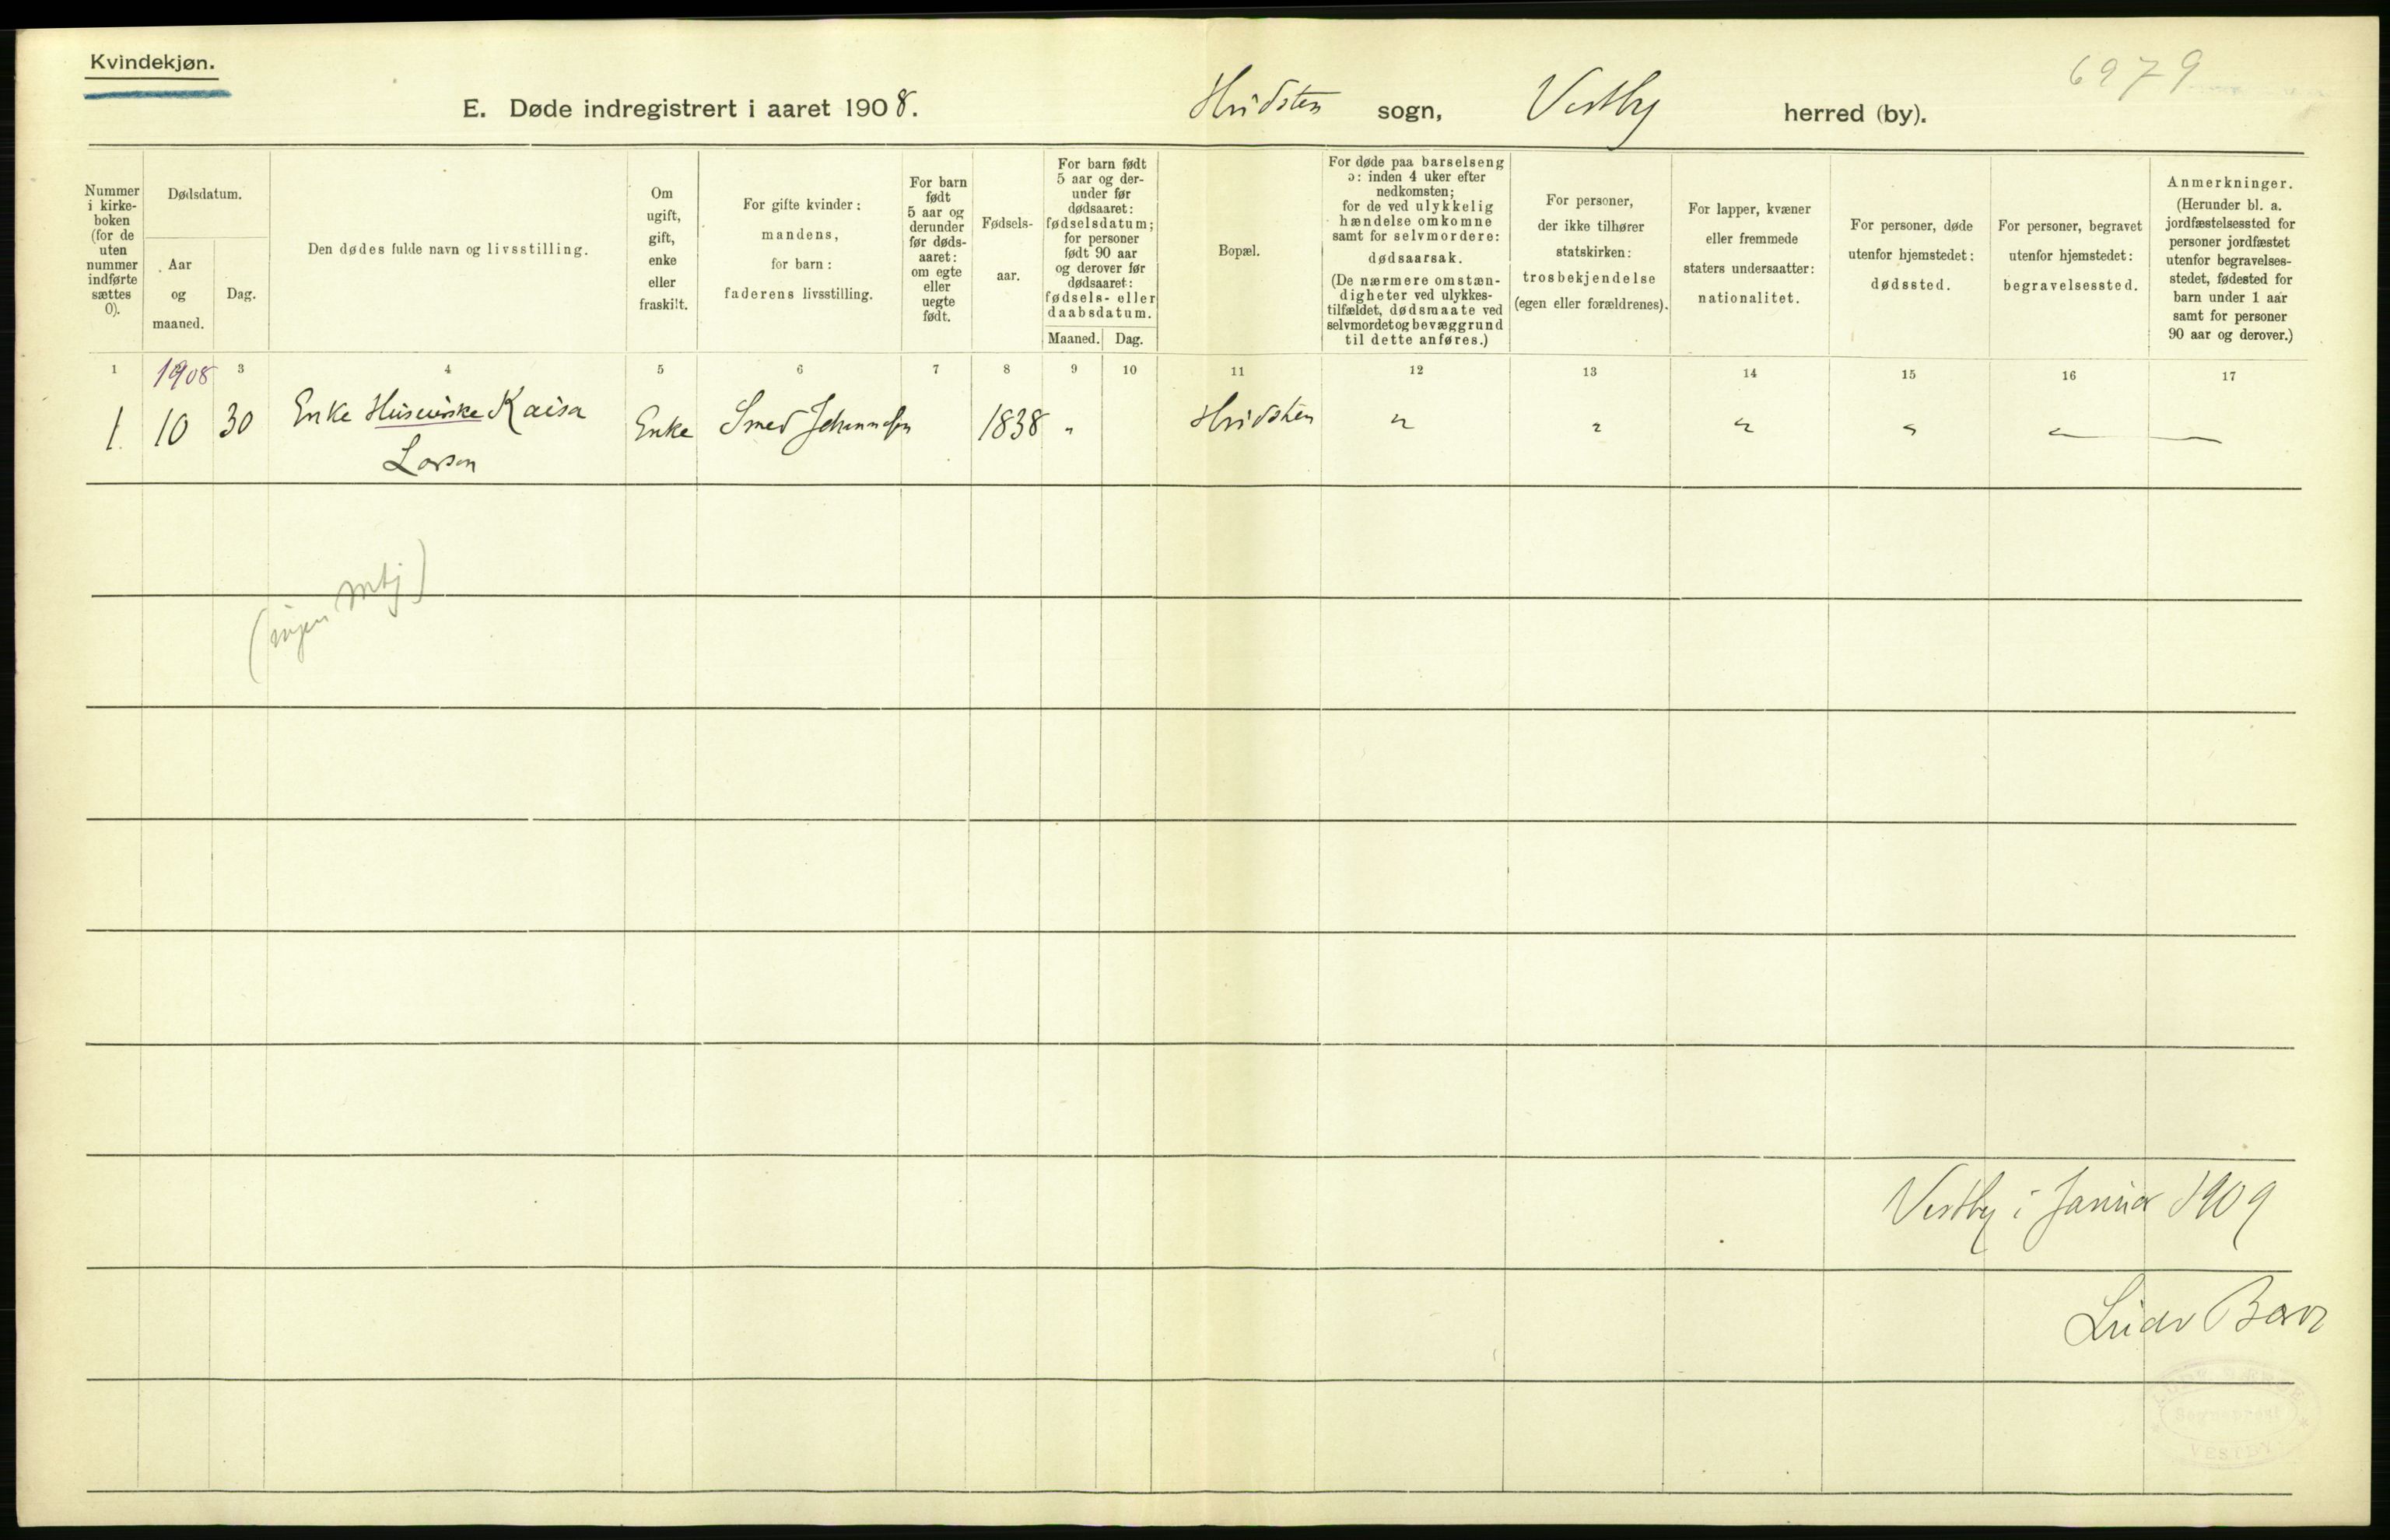 Kvindekjøn.
6979
E. Døde indregistrert i aaret 1908. Hvidsten sogn, Vestby herred (by).
Nummer
i kirke-
boken
(for de
uten
nummer
indførte
sættes
0).
Dødsdatum.
Aar
og
maaned.
Dag.
Den dødes fulde navn og livsstilling.
Om
ugift,
gift,
enke
eller
fraskilt.
For gifte kvinder:
mandens,
for barn:
faderens livsstilling.
For barn
født
5 aar og
derunder
før døds-
aaret:
om egte
eller
uegte
født.
Fødsels-
aar.
For barn født
5 aar og der-
under før
dødsaaret:
fødselsdatum;
for personer
født 90 aar
og derover før
dødsaaret:
fødsels- eller
daabsdatum.
Maaned.
Dag.
Bopæl.
For døde paa barselseng
ɔ: inden 4 uker efter
nedkomsten;
for de ved ulykkelig
hændelse omkomne
samt for selvmordere:
dødsaarsak.
(De nærmere omstæn-
digheter ved ulykkes-
tilfældet, dødsmaate ved
selvmordet og bevæggrund
til dette anføres.)
For personer,
der ikke tilhører
statskirken:
trosbekjendelse
(egen eller forældrenes).
For lapper, kvæner
eller fremmede
staters undersaatter:
nationalitet.
For personer, døde
utenfor hjemstedet:
dødssted.
For personer, begravet
utenfor hjemstedet:
begravelsessted.
Anmerkninger.
(Herunder bl. a.
jordfæstelsessted for
personer jordfæstet
utenfor begravelses-
stedet, fødested for
barn under 1 aar
samt for personer
90 aar og derover.)
1 1908 3 4 5 6 7 8 9 10 11 12 13 14 15 16 17
1. 10 30 Enke Kaisa Enke Smed 1838 " Hvidsten " " " " " —
Larson
(ingen
Vestby i Januar 1909
Ludv Bærø
Sogneprest
VESTBY